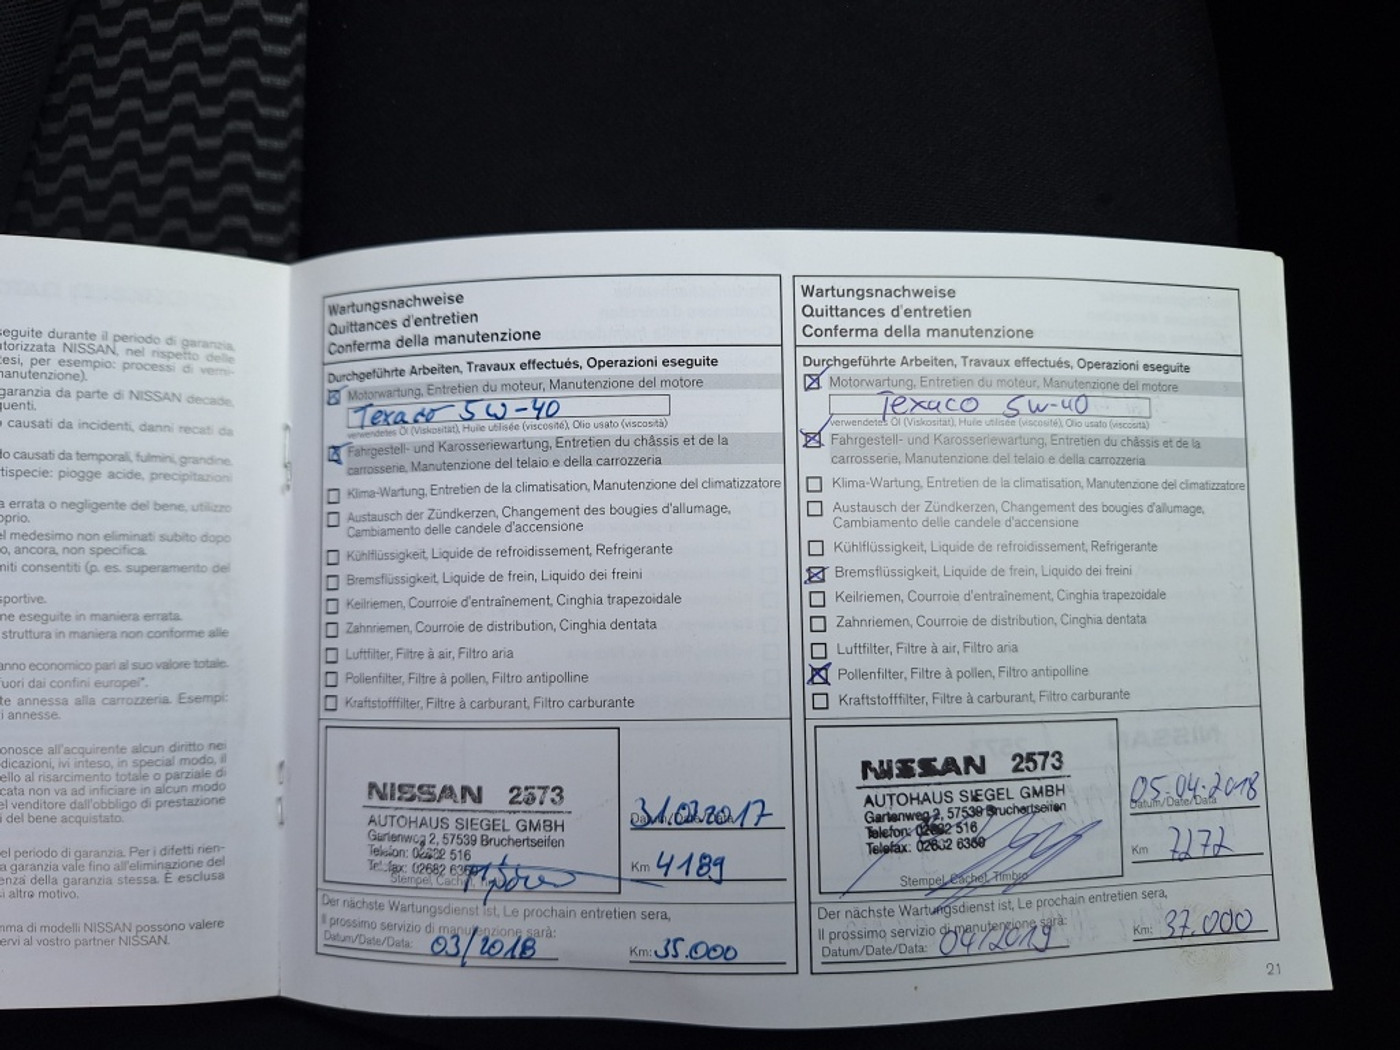 seguite durante il periodo di garanzia,
torizzata NISSAN, nel rispetto delle
tesi, per esempio: processi di verni-
manutenzione).
garanzia da parte di NISSAN decade,
quenti.
causati da incidenti, danni recati da
do causati da temporali, fulmini, grandine,
tispecie: piogge acide, precipitazioni
a errata o negligente del bene, utilizzo
oprio.
el medesimo non eliminati subito dopo
o, ancora, non specifica.
miti consentiti (p. es. superamento del
sportive.
ne eseguite in maniera errata.
struttura in maniera non conforme alle
anno economico pari al suo valore totale.
fuori dai confini europei".
te annessa alla carrozzeria. Esempi:
i annesse.
onosce all'acquirente alcun diritto nei
dicazioni, ivi inteso, in special modo, il
ello al risarcimento totale o parziale di
cata non va ad inficiare in alcun modo
el venditore dall'obbligo di prestazione
i del bene acquistato.
el periodo di garanzia. Per i difetti rien-
a garanzia vale fino all'eliminazione del
enza della garanzia stessa. È esclusa
si altro motivo.
mma di modelli NISSAN possono valere
ervi al vostro partner NISSAN.
Wartungsnachweise
Quittances d'entretien
Conferma della manutenzione
Durchgeführte Arbeiten, Travaux effectués, Operazioni eseguite
Motorwartung, Entretien du moteur, Manutenzione del motore
Texaco 5W-40
verwendetes Öl (Viskosität), Huile utilisée (viscosité), Olio usato (viscosità)
Fahrgestell- und Karosseriewartung, Entretien du châssis et de la
carrosserie, Manutenzione del telaio e della carrozzeria
Klima-Wartung, Entretien de la climatisation, Manutenzione del climatizzatore
Austausch der Zündkerzen, Changement des bougies d'allumage,
Cambiamento delle candele d'accensione
Kühlflüssigkeit, Liquide de refroidissement, Refrigerante
Bremsflüssigkeit, Liquide de frein, Liquido dei freini
Keilriemen, Courroie d'entraînement, Cinghia trapezoidale
Zahnriemen, Courroie de distribution, Cinghia dentata
Luftfilter, Filtre à air, Filtro aria
Pollenfilter, Filtre à pollen, Filtro antipolline
Kraftstofffilter, Filtre à carburant, Filtro carburante
NISSAN 2573
AUTOHAUS SIEGEL GMBH
Gartenweg 2, 57539 Bruchertseifen
Telefon: 02682 516
Telefax: 02682 6360
Stempel, Cachet, Timbro
31.03.2017
Datum/Date/Data
Km 4189
Der nächste Wartungsdienst ist, Le prochain entretien sera,
Il prossimo servizio di manutenzione sarà:
Datum/Date/Data: 03/2018 Km: 35.000
Wartungsnachweise
Quittances d'entretien
Conferma della manutenzione
Durchgeführte Arbeiten, Travaux effectués, Operazioni eseguite
Motorwartung, Entretien du moteur, Manutenzione del motore
Texaco 5W-40
verwendetes Öl (Viskosität), Huile utilisée (viscosité), Olio usato (viscosità)
Fahrgestell- und Karosseriewartung, Entretien du châssis et de la
carrosserie, Manutenzione del telaio e della carrozzeria
Klima-Wartung, Entretien de la climatisation, Manutenzione del climatizzatore
Austausch der Zündkerzen, Changement des bougies d'allumage,
Cambiamento delle candele d'accensione
Kühlflüssigkeit, Liquide de refroidissement, Refrigerante
Bremsflüssigkeit, Liquide de frein, Liquido dei freini
Keilriemen, Courroie d'entraînement, Cinghia trapezoidale
Zahnriemen, Courroie de distribution, Cinghia dentata
Luftfilter, Filtre à air, Filtro aria
Pollenfilter, Filtre à pollen, Filtro antipolline
Kraftstofffilter, Filtre à carburant, Filtro carburante
NISSAN 2573
AUTOHAUS SIEGEL GMBH
Gartenweg 2, 57539 Bruchertseifen
Telefon: 02682 516
Telefax: 02682 6360
Stempel, Cachet, Timbro
05.04.2018
Datum/Date/Data
Km 7272
Der nächste Wartungsdienst ist, Le prochain entretien sera,
Il prossimo servizio di manutenzione sarà:
Datum/Date/Data: 04/2019 Km: 37.000
21